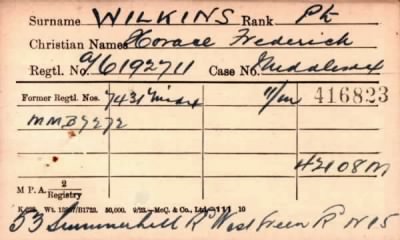 Surname WILKINS Rank Pte
Christian Names Horace Frederick
Regtl. No. G/6192711 Case No. Middlesex
Former Regtl. Nos. 7431 Midx 11/M 416823
MMB7272
42108M
M P A. 2 Registry
50,000. 9/23.—McC. & Co., Ltd.
53 Summerhill Rd West Green Rd N 15